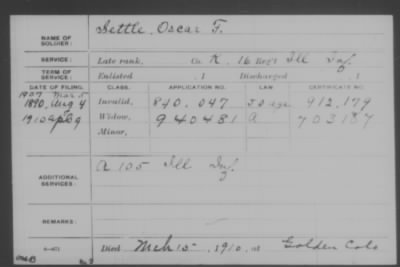 NAME OF SOLDIER: Settle, Oscar F.
SERVICE: Late rank, Co. K, 16 Reg't Ill Inf.
TERM OF SERVICE: Enlisted , 1 Discharged , 1
DATE OF FILING. CLASS. APPLICATION NO. LAW CERTIFICATE NO.
1907 Mar 5
1890, Aug 4 Invalid, 840.047 412.179
1910 Apl 9 Widow, 940481 703137
Minor,
ADDITIONAL SERVICES: A 105 Ill Inf.
REMARKS:
Died Mch 15, 1910, at Golden Colo